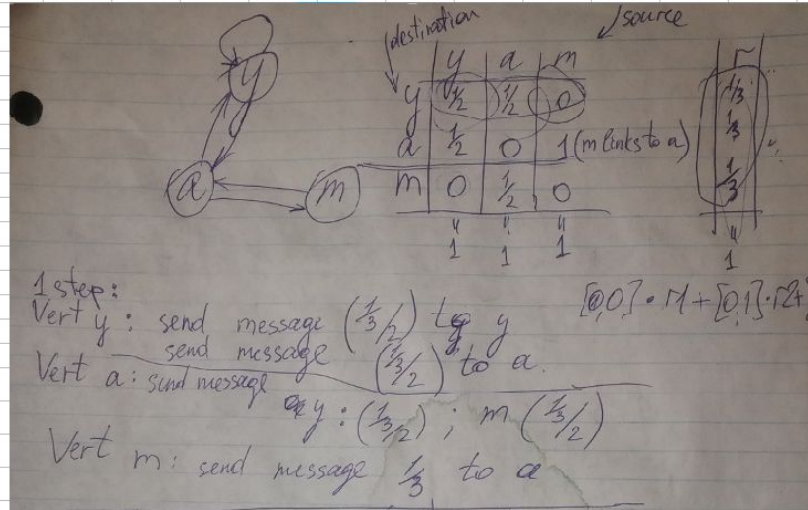 destination
source
y a m
r
y 1/2 1/2 0
1/3
a 1/2 0 1 (m links to a)
1/3
m 0 1/2 0
1/3
" " "
1 1 1
"
1
y
a
m
1 step:
[0,0]·r1+[0,1]·r2+
Vert y: send message (1/3/2) to y
send message (1/3/2) to a.
Vert a: send message
y: (1/3/2); m (1/3/2)
Vert m: send message 1/3 to a